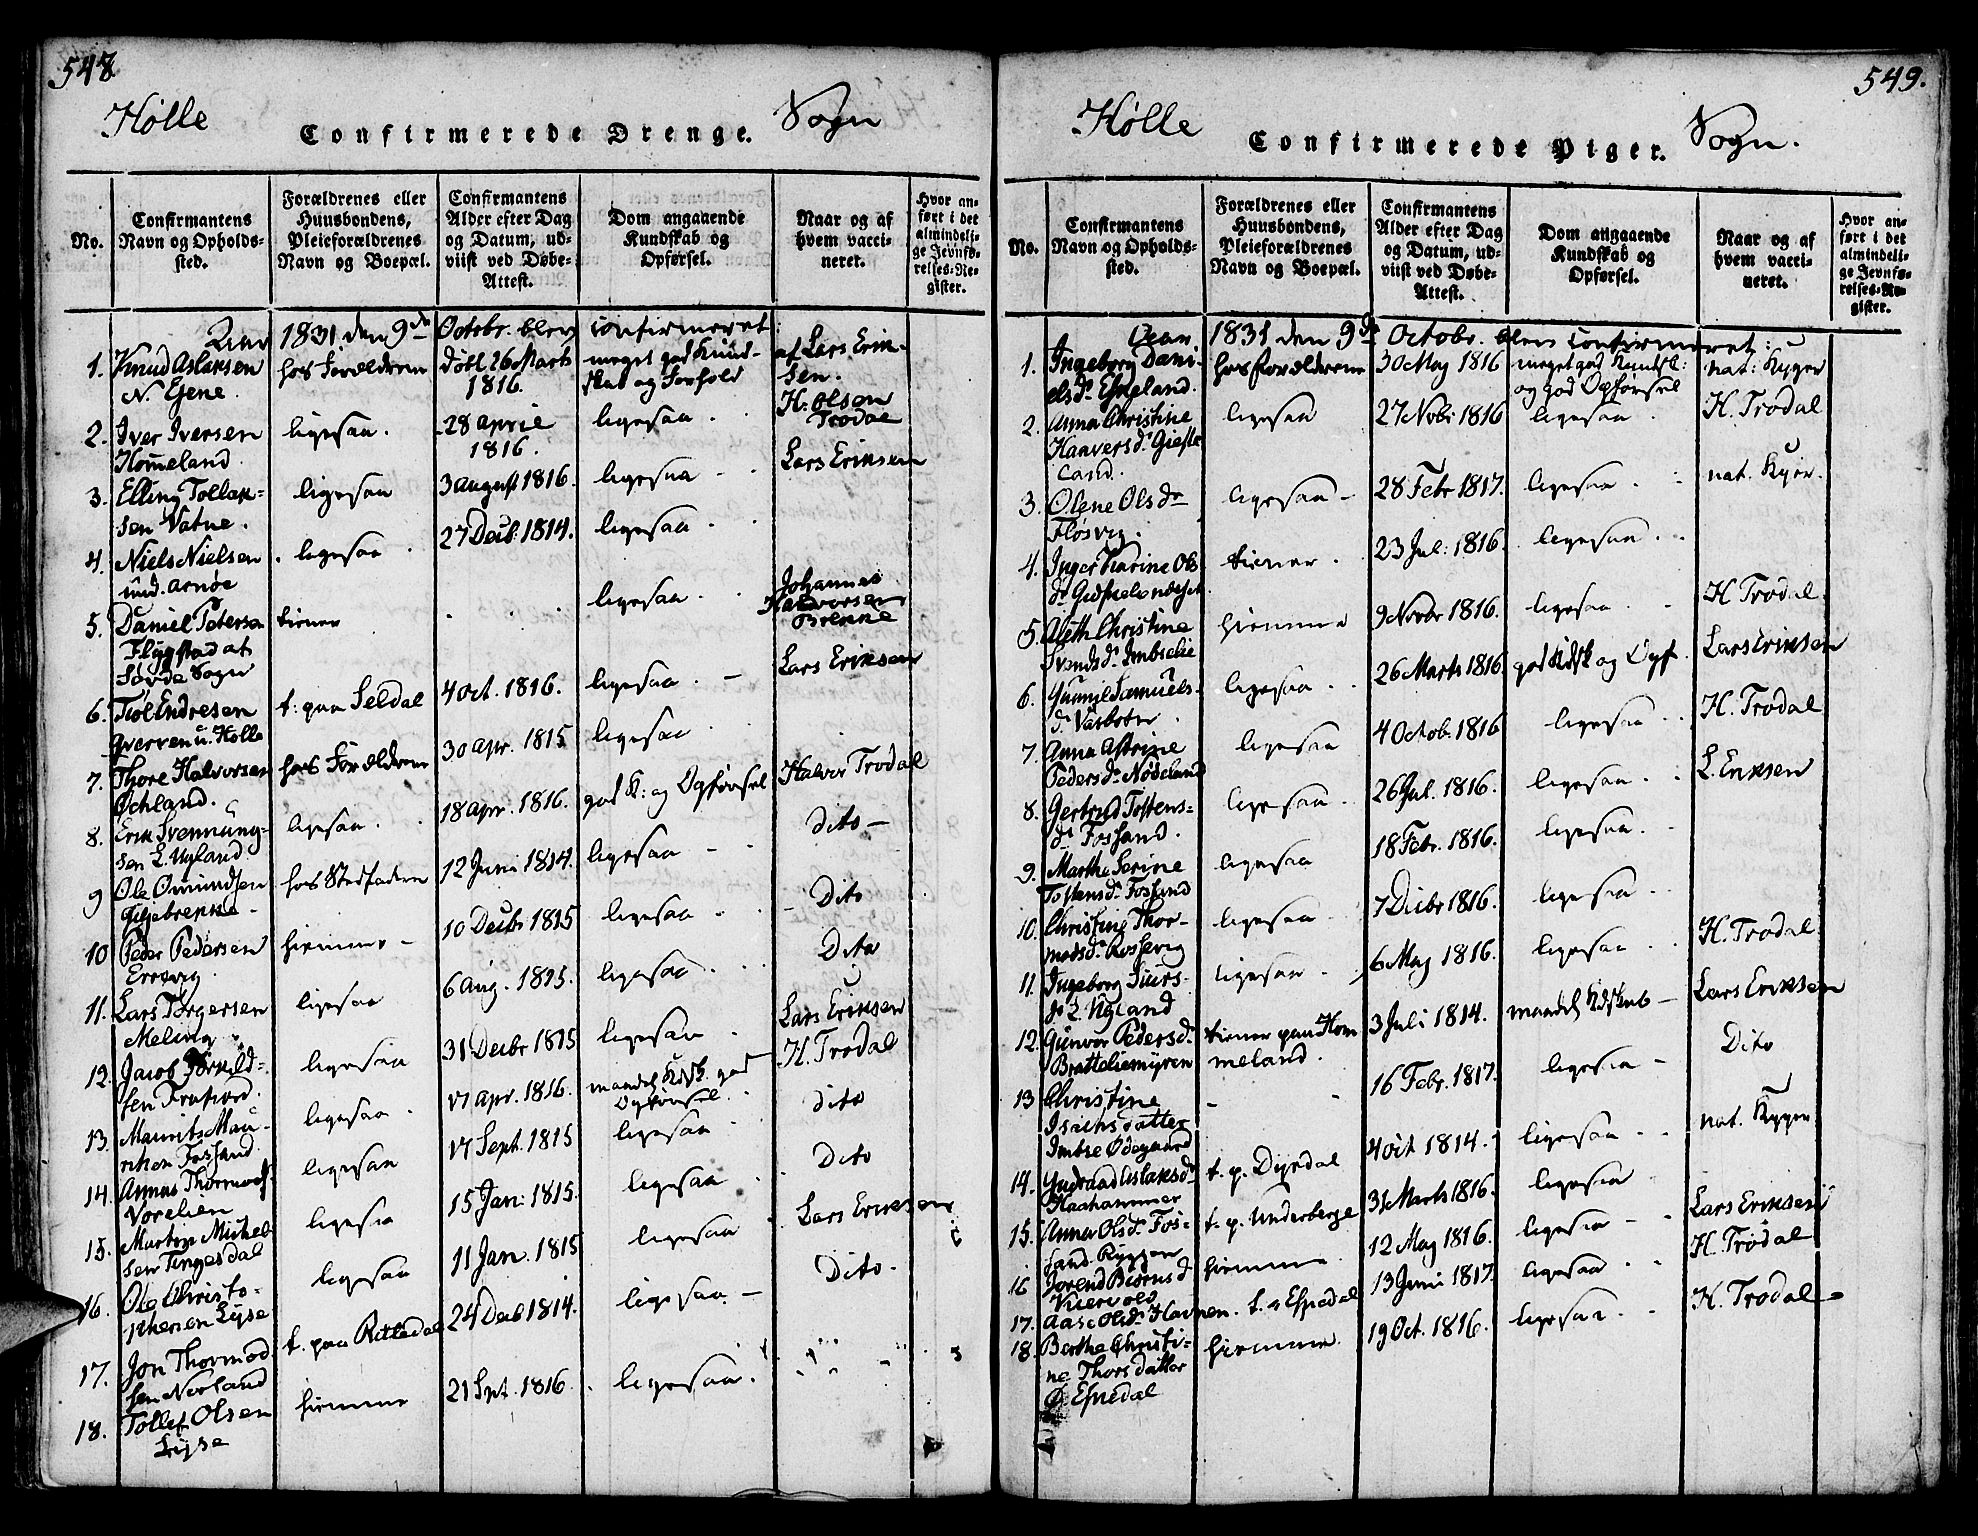 548
Hølle
Confirmerede Drenge.
Sogn
No.
Confirmantens
Navn og Opholds-
sted.
Forældrenes eller
Huusbondens,
Pleieforældrenes
Navn og Boepæl.
Confirmantens
Alder efter Dag
og Datum, ud-
viist ved Døbe-
Attest.
Dom angaaende
Kundskab og
Opførsel.
Naar og af
hvem vacci-
neret.
Hvor an-
ført i det
almindeli-
ge Jevnfø-
relses-Re-
gister.
1831 den 9de Octobr. blev confirmeret:
1. Knud Aslaksen
N. Ejene.
hos Foreldrene
døbt 26 Marts
1816.
meget god Kund-
skab og Forhold
af Lars Erik-
sen.
2. Iver Iversen
Hom̄eland.
ligesaa.
28 April
1816.
ligesaa.
H. Olsen
Trodal
3. Elling Tollak-
sen Vatne.
ligesaa
3 August 1816.
ligesaa
Lars Eriksen
4. Niels Nielsen
und. Arnøe
ligesaa
27 Decb. 1814.
ligesaa
5. Daniel Peterson
Flygstad af
Søvde Sogn
tiener
ligesaa
Johannes
Halvorsen
Brekke
6. Endresen
u. Hølle
t: paa Seldal
4 Oct. 1816.
ligesaa.
Lars Eriksen
7. Thore Halvorsen
hos Foreldrene
30 Apr. 1815
ligesaa
8. Erik Svennung-
sen L. Nyland.
ligesaa.
18 Apr. 1816.
god K: og Opførsel
Halvor Trodal
9 Ole Omundsen
Gijlebrekke
hos Stedfaderen
12 Juni 1814.
ligesaa
dito
10 Peder Pedersen
Errevig.
hiemme
10 Decbr 1815
ligesaa
Dito
11. Lars Torgersen
Meling
ligesaa
6 Aug. 1815.
ligesaa
Dito
12. Jacob Torkild-
sen Frafiord.
ligesaa
31 Decbr 1815
ligesaa
Lars Eriksen
13. Maurits Mau-
ritsen Fossand
ligesaa.
17 Apr. 1816.
maadel. Kdsk. god
Opførsel.
H. Trodal
14. Asmus Thormods.
Vorelien
ligesaa
17 Sept. 1815
ligesaa
dito
15. Martin Michel-
sen Tengesdal
ligesaa
15 Jan: 1815.
ligesaa
Dito
16. Ole Christo-
phersen Lyse
ligesaa
11 Jan. 1815
ligesaa
Lars Eriksen
17. Jon Thormod-
sen Norland
t. paa
24 Decb 1814.
ligesaa.
Dito.
18. Tollef Olsen
Lyse
hiemme
21 Spt. 1816.
ligesaa.
549.
Hølle
Confirmerede Piger.
Sogn.
No.
Confirmantens
Navn og Opholds-
sted.
Forældrenes eller
Huusbondens,
Pleieforældrenes
Navn og Boepæl.
Confirmantens
Alder efter Dag
og Datum, ud-
viist ved Døbe-
Attest.
Dom angaaende
Kundskab og
Opførsel.
Naar og af
hvem vacci-
neret.
Hvor an-
ført i det
almindeli-
ge Jevnfø-
relses-Re-
gister.
1831 den 9de Octobr. blev confirmeret:
1. Ingeborg Dani-
elsdr. Espeland.
hos foreldrene
30 May 1816
meget god Kundsk:
og god Opførsel
nat: Kyger
2. Anna Christine
Haaversdr.
ligesaa
27 Nobr. 1816
ligesaa
H. Trodal
3. Olene Olsdr
Fløsvig.
ligesaa
28 Febr 1817.
ligesaa
nat. Kyer.
4. Inger Karine Ols
tiener.
23 Jul: 1816.
ligesaa
5. Aleth Christine
Svendsdr. Imbselie
hiemme
9 Novbr 1816.
ligesaa
H. Trodal.
6. Gunnil Samuels-
dr. Vasboten.
ligesaa.
26 Marts 1816
god Kdsk og Opf.
Lars Eriksen
7. Anna Astrine
Pedersdr. Nødeland
ligesaa
4 Octob. 1816
ligesaa
H. Trodal
8. Gertrud Tostens-
dr. Fossand.
ligesaa.
26 Jul. 1816.
ligesaa.
L. Eriksen
9. Martha Serine
Tostensdr. Fossand
ligesaa
18 Febr. 1816.
ligesaa.
10. Christine Thor-
modsdr. Rossevig
ligesaa.
7 Decbr 1816.
ligesaa
11. Ingeborg Siurs-
dr. L. Nyland
ligesaa
6 May 1816.
ligesaa
H. Trodal
12. Gunvor Pedersdr.
Bratteliemyren
tiener paa Hom
meland.
3 Juli 1814.
maadel. Kdskab
Lars Eriksen
13 Christine
Isachsdatter
Imbse Ødegaard
16 Febr. 1817.
ligesaa
Dito
14. Aslaksdr
Haahammer
t. p. Dyrdal
4 Oct 1814.
ligesaa
nat. Kyger
15. Anna Olsdr. Fos-
sand Ryggen
t. p. Underberge
31 Marts 1816.
ligesaa
16 Jorend Biørnsdr
hiemme
12 May 1816.
ligesaa
Lars Eriksen
17. Aase Olsdr. Havnen.
t. p Espedal
13 Juni 1817.
ligesaa
H. Trodal
18. Berthe Christi-
ne Thorsdatter
Ø. Espedal
hiemme.
19 Oct. 1816.
ligesaa.
H. Trodal